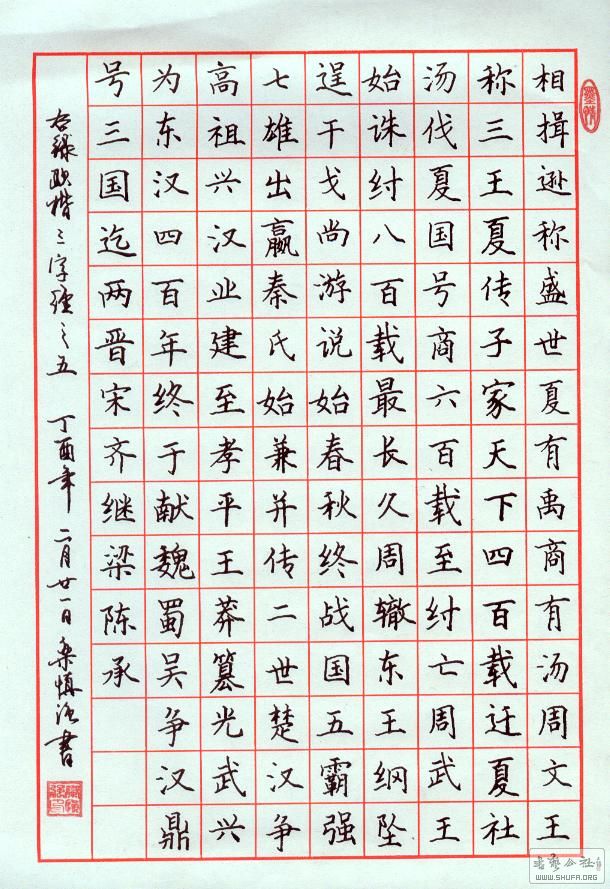 相揖逊称盛世夏有禹商有汤周文王
称三王夏传子家天下四百载迁夏社
汤伐夏国号商六百载至纣亡周武王
始诛纣八百载最长久周辙东王纲坠
逞干戈尚游说始春秋终战国五霸强
七雄出嬴秦氏始兼并传二世楚汉争
高祖兴汉业建至孝平王莽篡光武兴
为东汉四百年终于献魏蜀吴争汉鼎
号三国迄两晋宋齐继梁陈承
右録欧楷三字经之五 丁酉年二月廿一日桑慎治書
书艺公社
WWW.SHUFA.ORG